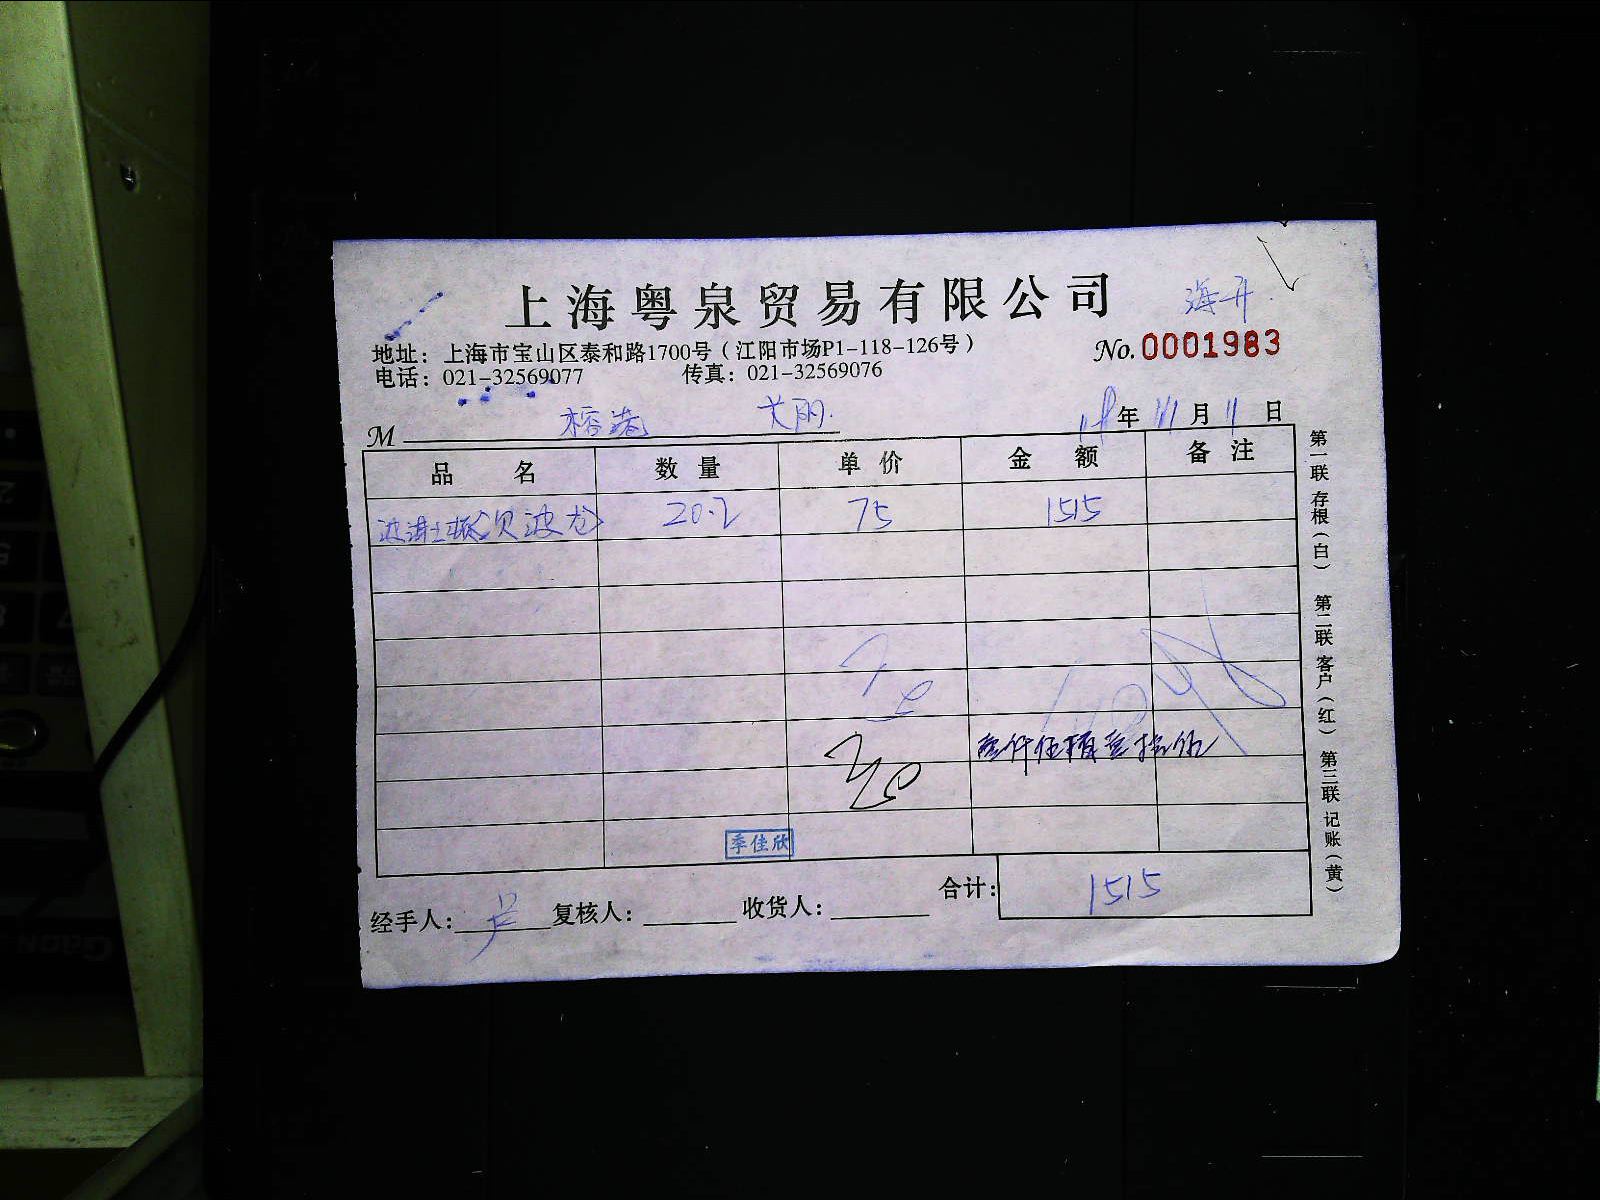 上海粤泉贸易有限公司
海开
地址：上海市宝山区泰和路1700号（江阳市场P1-118-126号）
No. 0001983
电话：021-32569077 传真：021-32569076
M 榕港
18年 11月 11日
品名 数量 单价 金额 备注
波士顿 20.2 75 1515
季佳欣
合计：1515
经手人： 复核人： 收货人：
第一联 存根（白） 第二联 客户（红） 第三联 记账（黄）